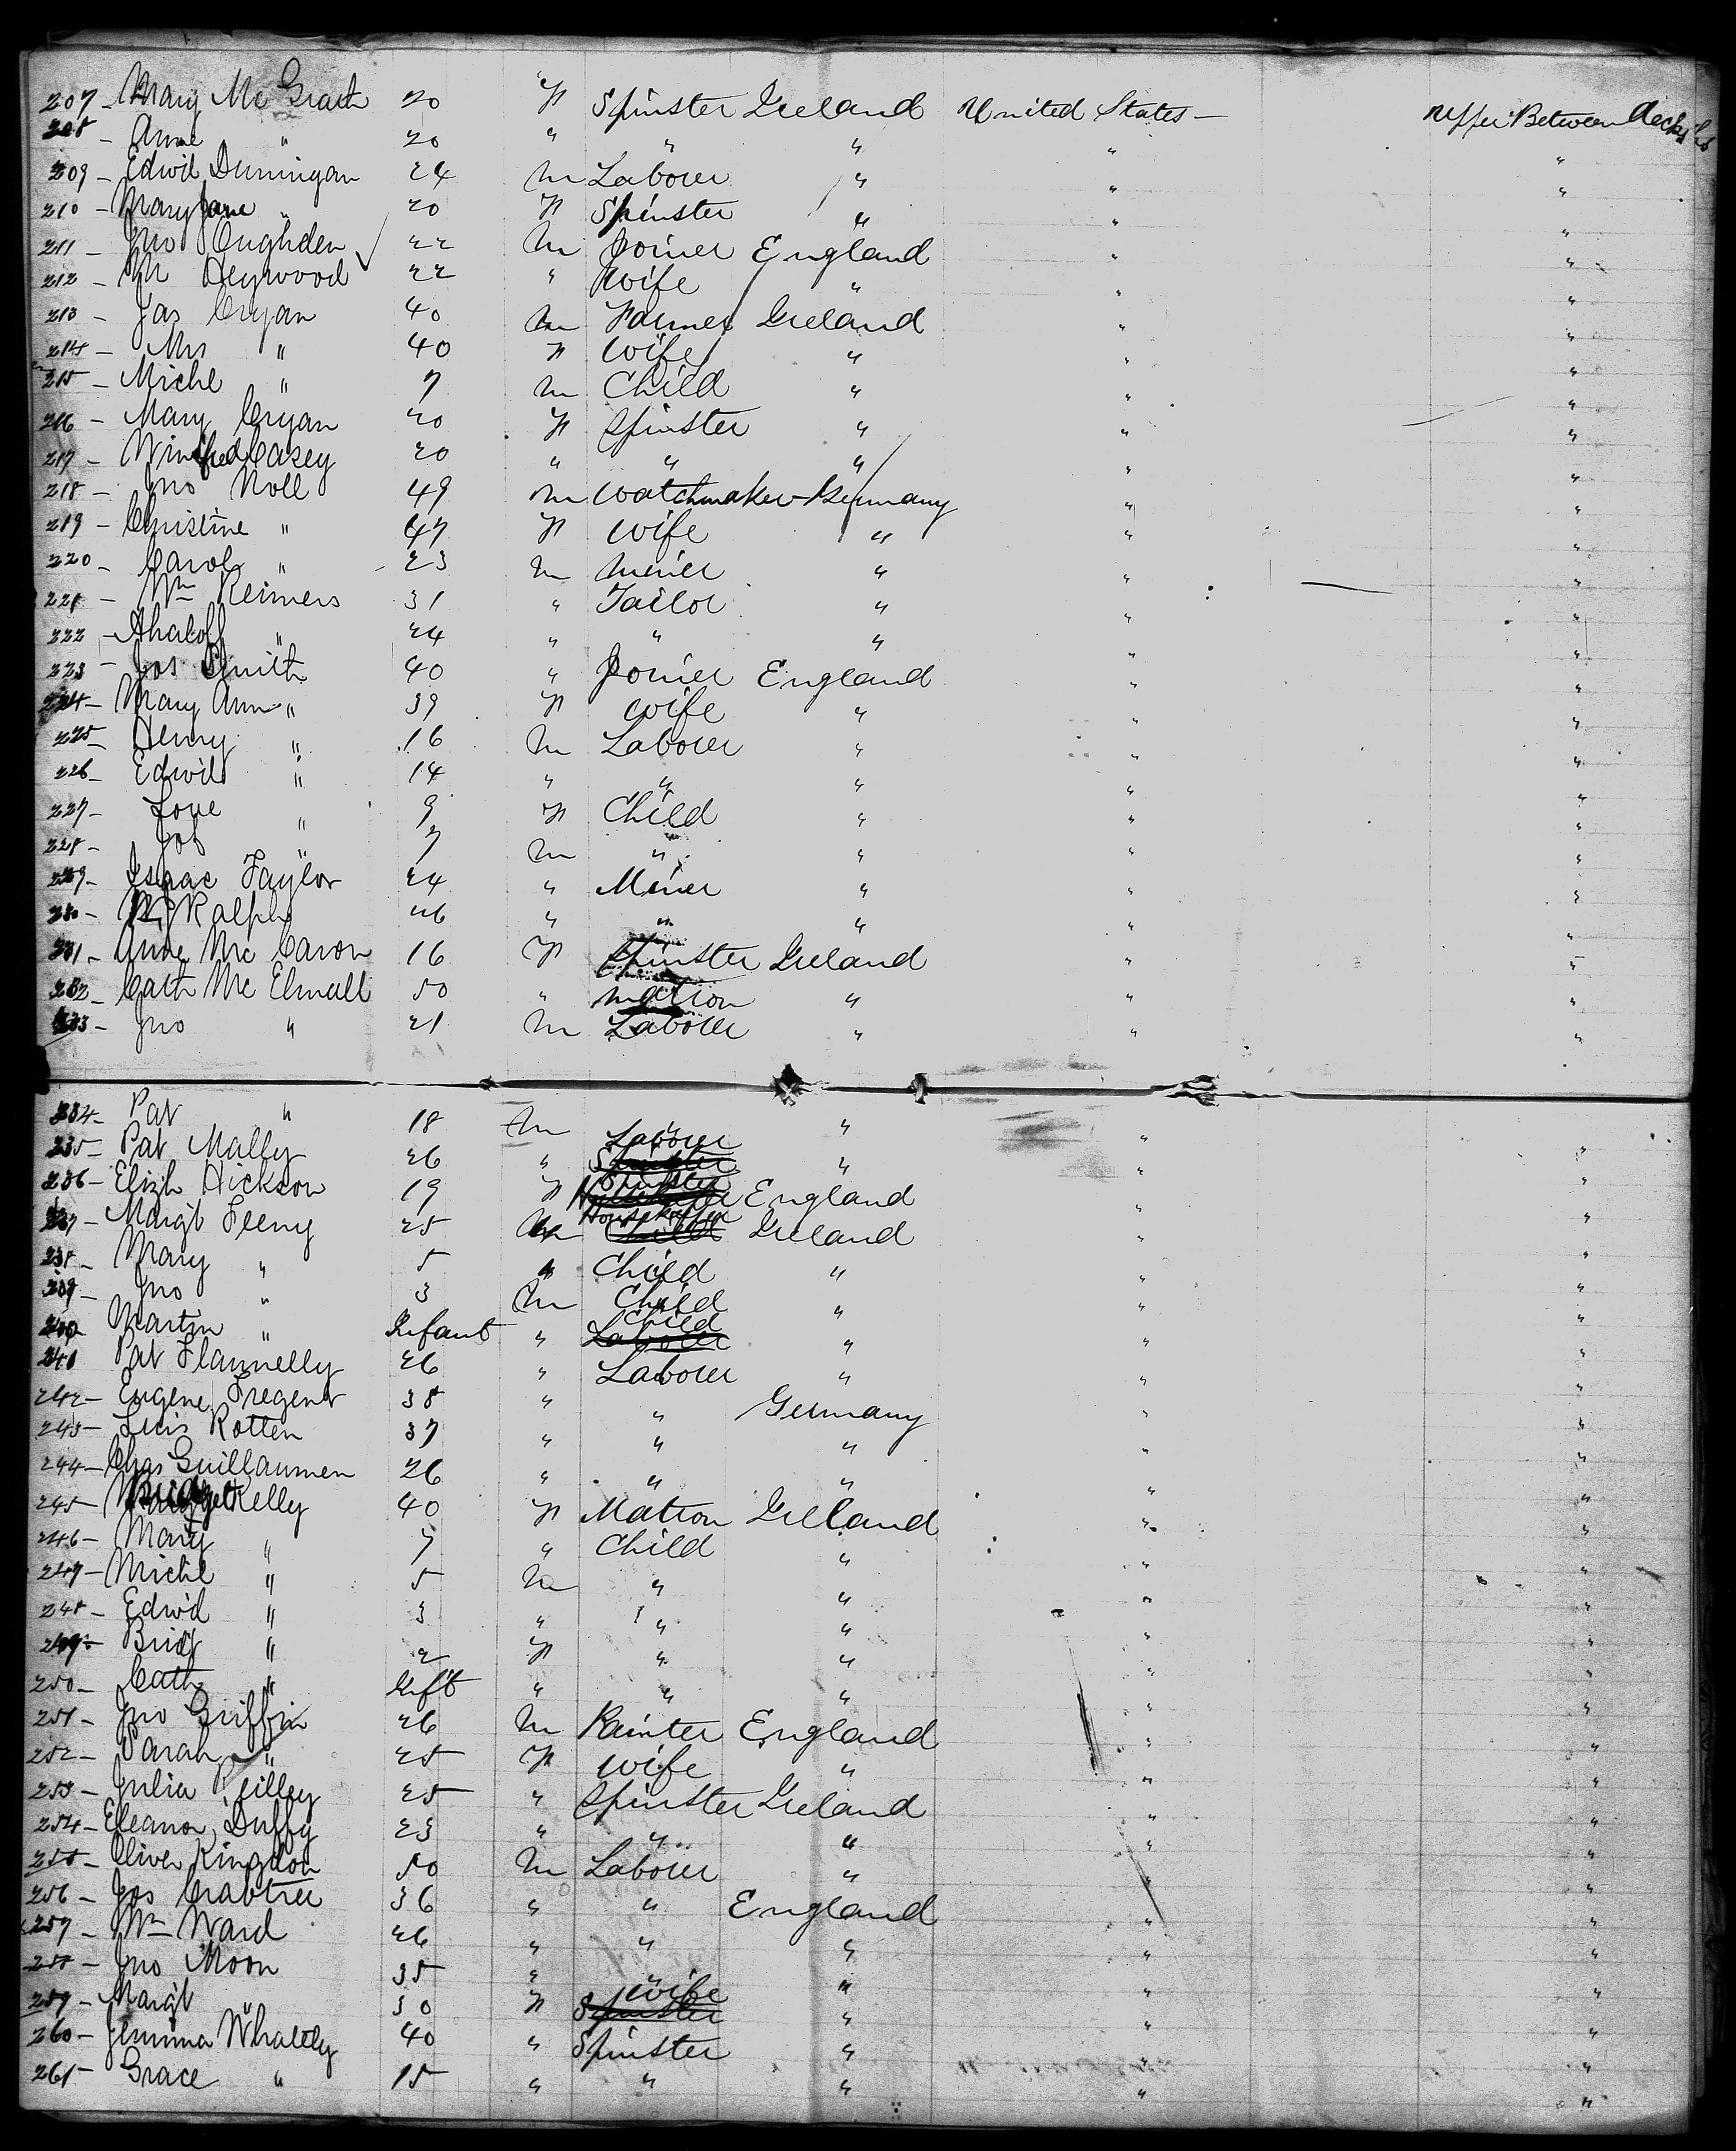 207 - Mary Mc Grath 20 F Spinster Ireland United States - Upper Between decks
208 - Anne " 20 " " " " "
209 - Edwd Dunnigan 24 M Laborer " " "
210 - Mary Jane " 20 F Spinster " " "
211 - Jno Cughden 22 M Joiner England " "
212 - M Heywood 22 " Wife " " "
213 - Jas Cryan 40 M Farmer Ireland " "
214 - Mrs " 40 F Wife " " "
215 - Michl " 7 M Child " " "
216 - Mary Cryan 20 F Spinster " " "
217 - Winifred Casey 20 " " " " "
218 - Jno Noll 49 M Watchmaker - Germany " "
219 - Christine " 47 F Wife " " "
220 - Carol " 23 M Miner " " "
221 - Wm Reimers 31 " Tailor " " "
222 - " 24 " " " " "
223 - Jos Smith 40 " Joiner England " "
224 - Mary Ann " 39 F Wife " " "
225 - Henry " 16 M Laborer " " "
226 - Edwd " 14 " " " " "
227 - Love " 9 F Child " " "
228 - Job " 7 M " " " "
229 - Isaac Taylor 24 " Miner " " "
230 - Ralph 26 " " " " "
231 - Anne Mc Caron 16 F Spinster Ireland " "
232 - Cath Mc Elmull 50 " Matron " " "
233 - Jno " 21 M Laborer " " "
234 - Pat " 18 M " " " "
235 - Pat Mally 26 " Laborer " " "
236 - Elizh Hickson 19 F Spinster England " "
237 - Margt Feeny 25 Housekeeper Ireland " "
238 - Mary " 5 " Child " " "
239 - Jno " 3 M Child " " "
240 - Martin " Infant " Child " " "
241 Pat Flannelly 26 " Laborer " " "
242 - Eugene Fregent 38 " " Germany " "
243 - Luis Rotten 37 " " " " "
244 - Chas Guillaumen 26 " " " " "
245 - Bridget Kelly 40 F Matron Ireland " "
246 - Mary " 7 " Child " " "
247 - Michl " 5 M " " " "
248 - Edwd " 3 " " " " "
249 - Bridt " 2 F " " " "
250 - Cath " Inft " " " " "
251 - Jno Griffin 26 M Painter England " "
252 - Sarah " 25 F Wife " " "
253 - Julia Reilley 25 " Spinster Ireland " "
254 - Eleanor Duffy 23 " " " " "
255 - Oliver Kingdon 50 M Laborer " " "
256 - Jos Crabtree 36 " " England " "
257 - Wm Ward 26 " " " " "
258 - Jno Moon 35 " " " " "
259 - Margt " 30 F Wife " " "
260 - Jemima Whalley 40 " Spinster " " "
261 - Grace " 15 " " " " "